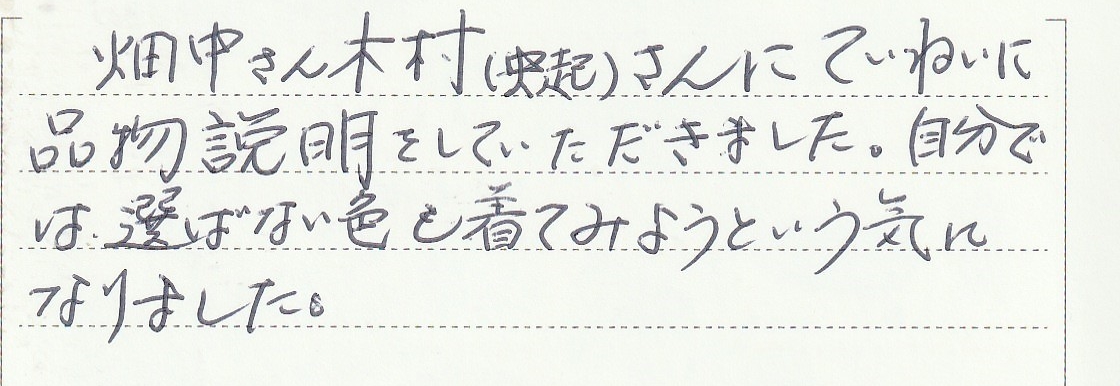 畑中さん木村(央起)さんにていねいに
品物説明をしていただきました。自分で
は選ばない色も着てみようという気に
なりました。